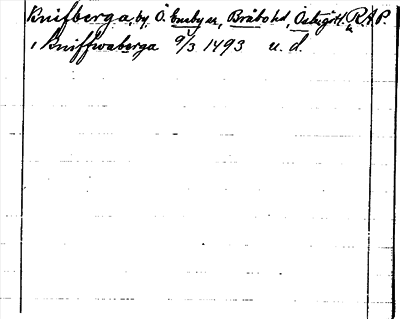 Knifberga, by, Ö. Eneby sn, Bråbo hd, Östergötl. R.A.P.
i Kniffwaberga 9/3 1493 u. d.